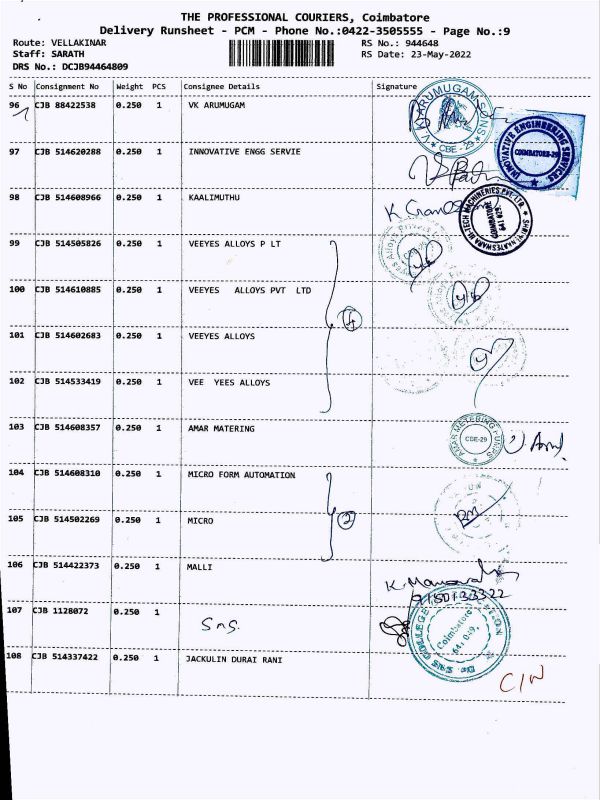 THE PROFESSIONAL COURIERS, Coimbatore
Delivery Runsheet - PCM - Phone No.:0422-3505555 - Page No.:9
Route: VELLAKINAR RS No.: 944648
Staff: SARATH RS Date: 23-May-2022
DRS No.: DCJB94464809
S No Consignment No Weight PCS Consignee Details Signature
96 CJB 88422538 0.250 1 VK ARUMUGAM
V.K. ARUMUGAM SONS CBE - 29
97 CJB 514620288 0.250 1 INNOVATIVE ENGG SERVIE
INNOVATIVE ENGINEERING SERVICES COIMBATORE-29
98 CJB 514608966 0.250 1 KAALIMUTHU
99 CJB 514505826 0.250 1 VEEYES ALLOYS P LT
100 CJB 514610885 0.250 1 VEEYES ALLOYS PVT LTD
4
101 CJB 514602683 0.250 1 VEEYES ALLOYS
102 CJB 514533419 0.250 1 VEE YEES ALLOYS
103 CJB 514608357 0.250 1 AMAR MATERING
AMAR METERING PUMPS CBE-29
104 CJB 514608310 0.250 1 MICRO FORM AUTOMATION
105 CJB 514502269 0.250 1 MICRO
2
106 CJB 514422373 0.250 1 MALLI
9150133322
107 CJB 1128072 0.250 1
Sns.
108 CJB 514337422 0.250 1 JACKULIN DURAI RANI
C/N